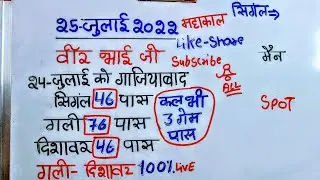 सिंगल⇒
25-जुलाई 2022 महाकाल
Like-Share
वीर भाई जी Subscribe मैन
24-जुलाई को गाजियाबाद & ALL
सिंगल 46 पास कल भी SPOT
गली 76 पास 3 गेम
दिशावर 46 पास पास
गली- दिशावर 100% Live